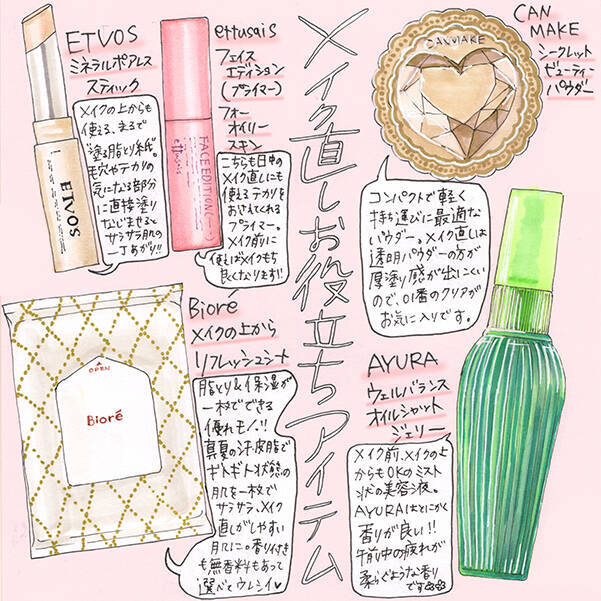 メイク直しお役立ちアイテム
ETVOS
ミネラルポアレス
スティック
メイクの上からも
使える、まるで
"塗る脂とり紙"。
毛穴やテカリの
気になる部分
に直接塗り
なじませると
サラサラ肌の
一丁あがり!!
ETVOS
ettusais
フェイス
エディション
(プライマー)
フォー
オイリー
スキン
こちらも日中の
メイク直しにも
使えるテカリを
おさえてくれる
プライマー。
メイク前に
使えばメイクもち
良くなります!!
FACE EDITION
ettusais
CAN
MAKE
シークレット
ビューティー
パウダー
CANMAKE
コンパクトで軽く
持ち運びに最適な
パウダー。メイク直しは
透明パウダーの方が
厚塗り感が出にくい
ので、01番のクリアが
お気に入りです。
Bioré
メイクの上から
リフレッシュシート
脂とり&保湿が
一枚でできる
優れモノ!!
真夏の汗、皮脂で
ギトギト状態の
肌を一枚で
サラサラ、メイク
直しがしやすい
肌に。香り付き
も無香料もあって
選べてウレシイ♥
OPEN
Bioré
AYURA
ウェルバランス
オイルシャット
ジェリー
メイク前、メイクの上
からもOKのミスト
状の美容液。
AYURAはとにかく
香りが良い!!
午前中の疲れが
柔らぐような香り
です